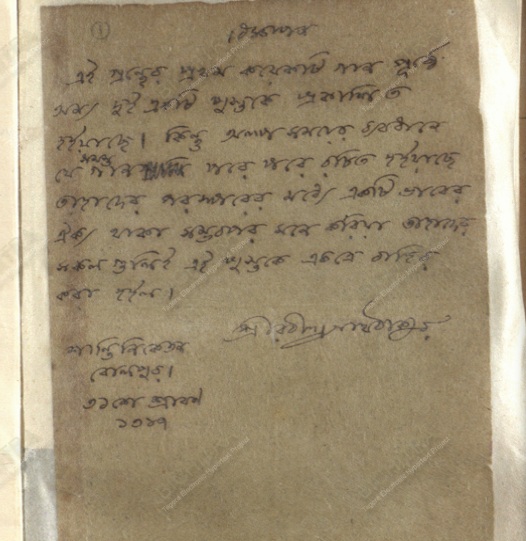 ①
বিজ্ঞাপন
এই গ্রন্থের প্রথম কয়েকটি গান পূর্ব্বে
অন্য দুই একটি পুস্তকে প্রকাশিত
হইয়াছে। কিন্তু অল্প সময়ের ব্যবধানে
যে সমস্ত গান পরে পরে রচিত হইয়াছে
তাহাদের পরস্পরের মধ্যে একটি ভাবের
ঐক্য থাকা সম্ভবপর মনে করিয়া তাহাদের
সকল গুলিই এই পুস্তকে একত্রে বাহির
করা হইল।
শ্রীরবীন্দ্রনাথ ঠাকুর
শান্তিনিকেতন
বোলপুর।
৩১শে শ্রাবণ
১৩১৭